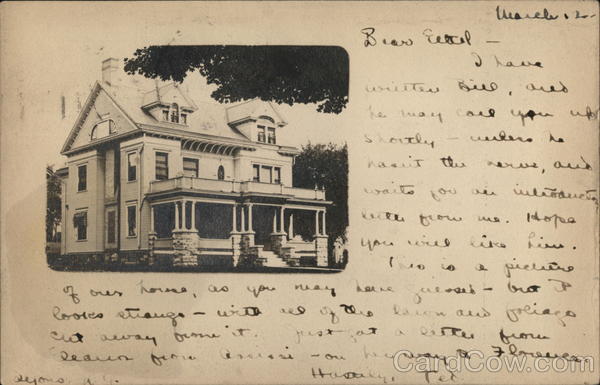 March 12-
Dear Ethel -
I have
written Bill, and
he may call you up
shortly - unless he
hasn't the nerve, and
waits for an introductory
letter from me. Hope
you will like him.
This is a picture
of our home, as you may have guessed - but it
looks strange - with all of the lawn and foliage
cut away from it. Just got a letter from
Eleanor from Assisi - on her way to Florence.
Hastily,
CardCow.com